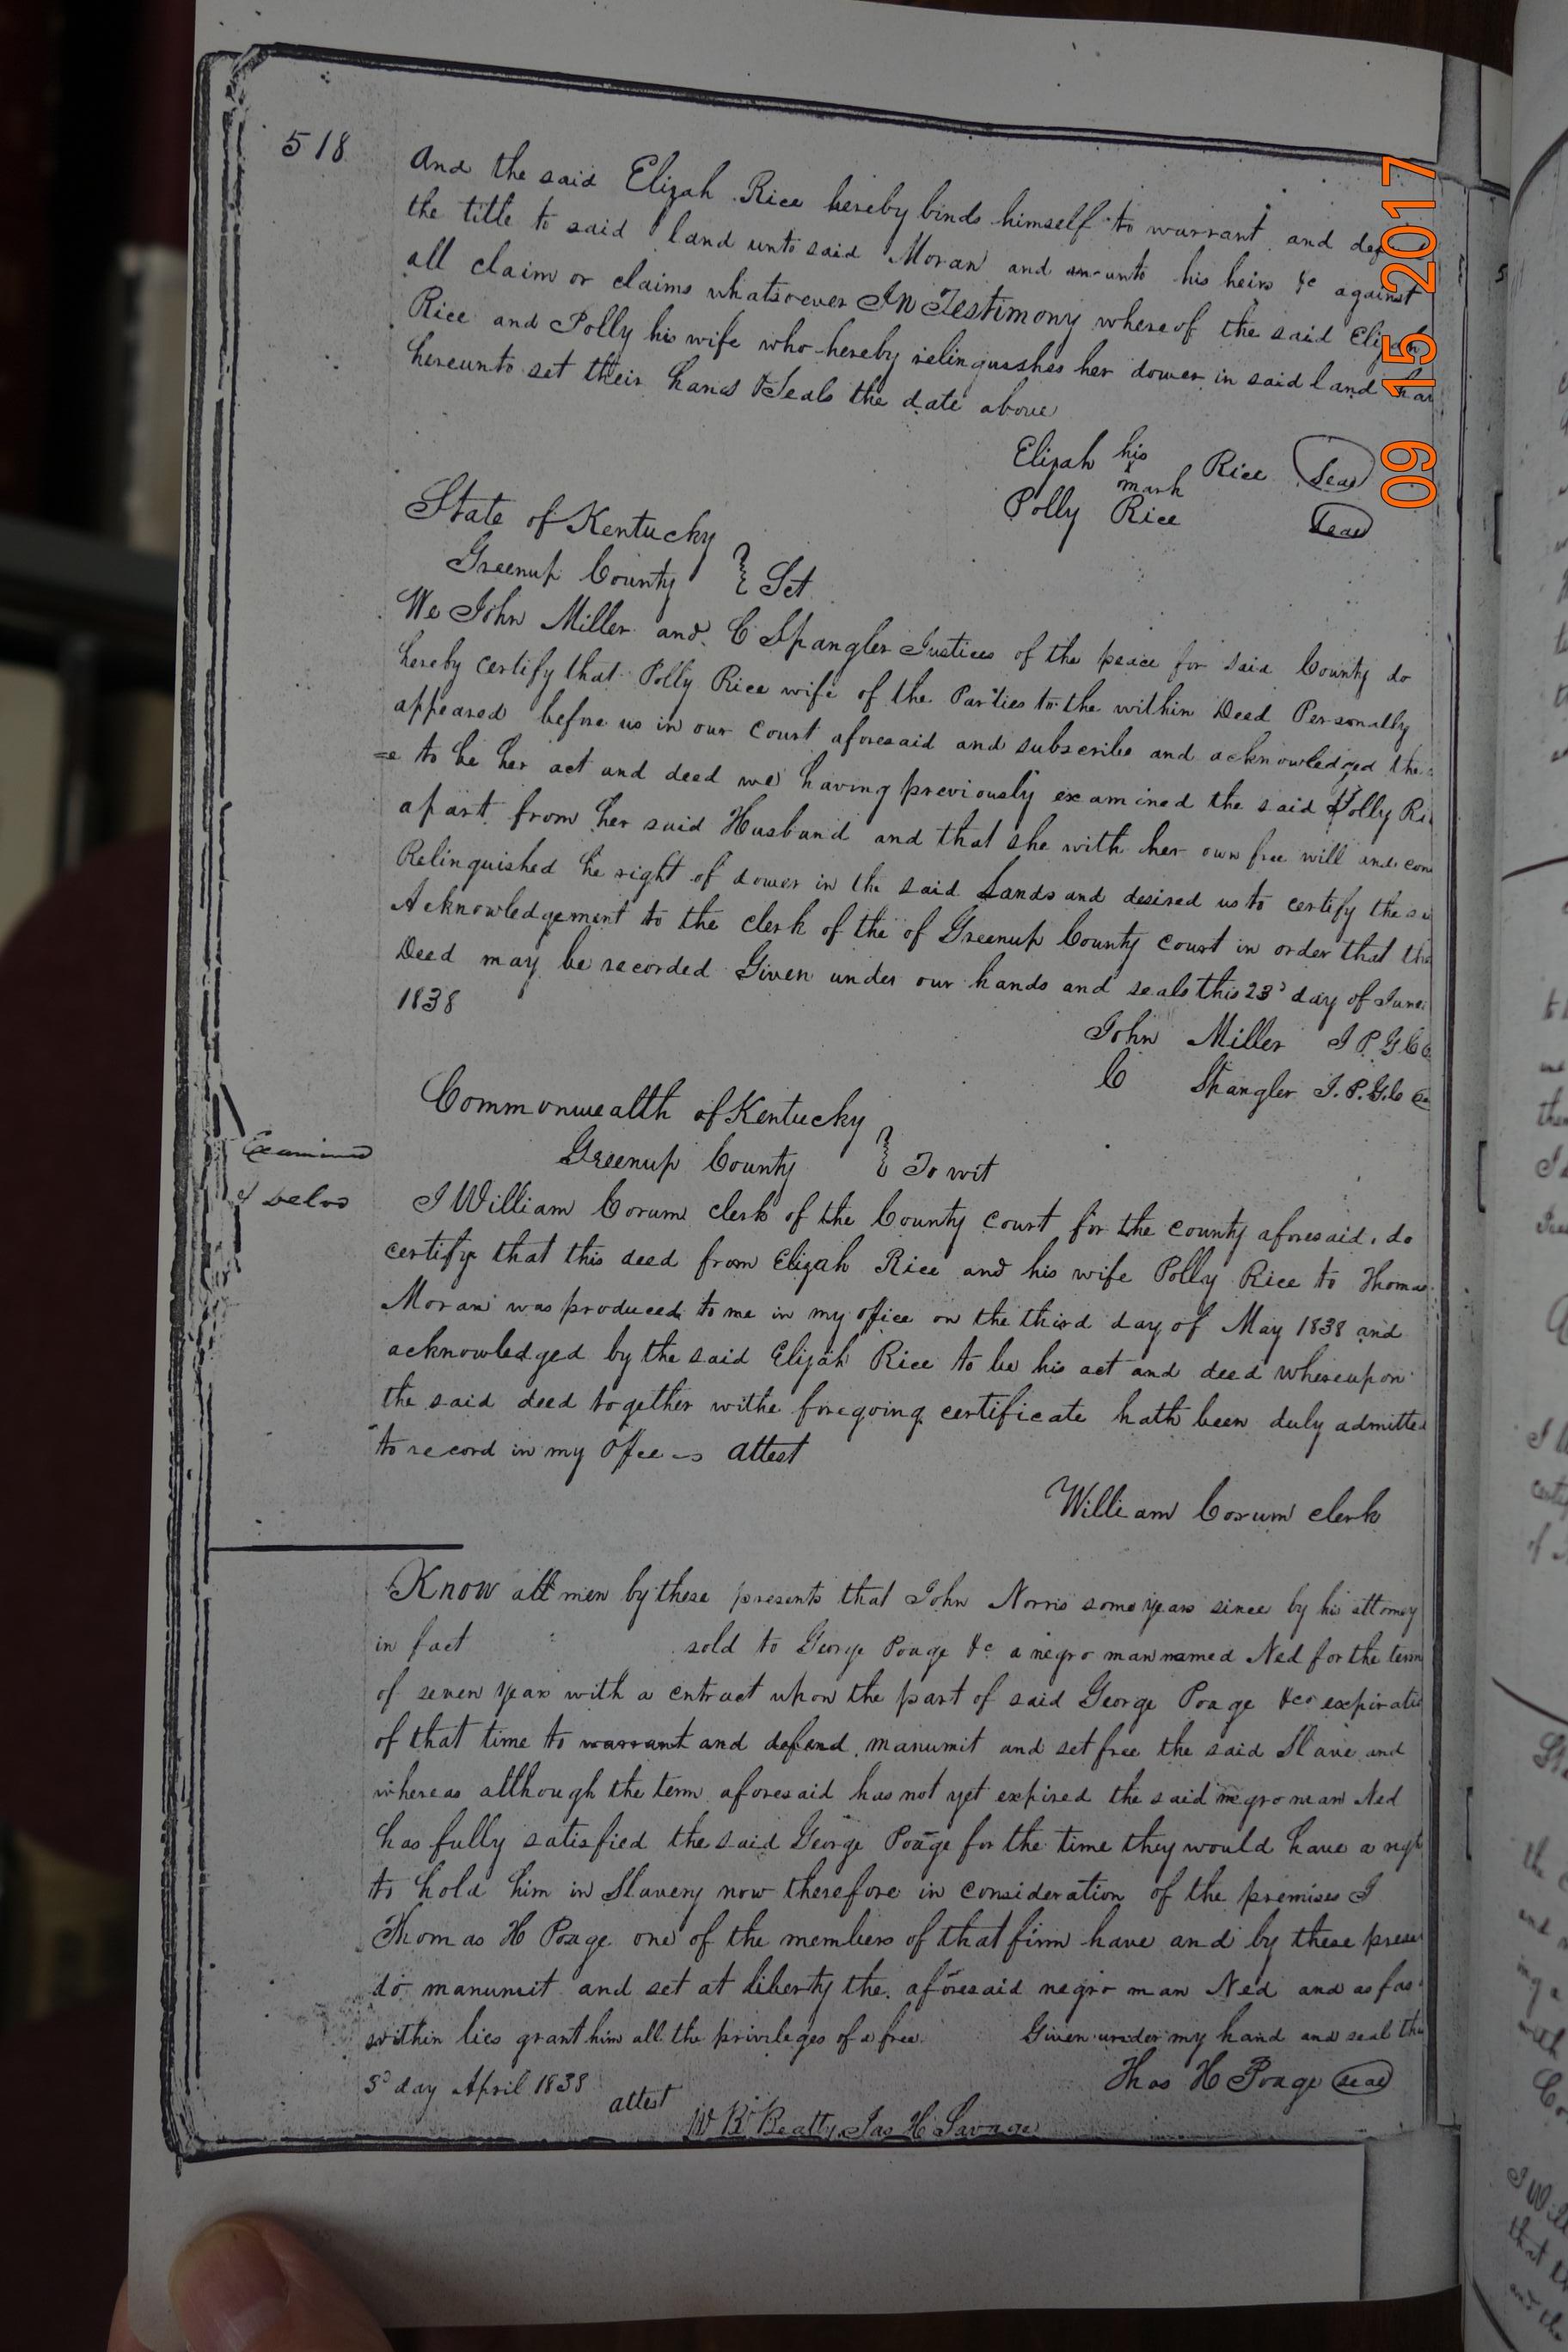 518
And the said Elijah Rice hereby binds himself to warrant and def
the title to said land unto said Moran and unto his heirs &c against
all claim or claims whatsoever In Testimony whereof the said Elijah
Rice and Polly his wife who hereby relinquishes her dower in said land ha
hereunto set their hands & Seals the date above
Elijah his x mark Rice Seal
Polly Rice Seal
State of Kentucky
Greenup County } Sct
We John Miller and C Spangler Justices of the peace for said County do
hereby certify that Polly Rice wife of the Parties to the within Deed Personally
appeared before us in our Court aforesaid and subscribe and acknowledged the s
=e to be her act and deed we having previously examined the said Polly Ri
apart from her said Husband and that she with her own free will and con
Relinquished he right of dower in the said Lands and desired us to certify the sa
Acknowledgement to the clerk of the of Greenup County court in order that the
Deed may be recorded Given under our hands and seals this 23d day of June
1838
John Miller J P G C
C Spangler J. P. G. C
Commonwealth of Kentucky
Greenup County } To wit
Examined
I William Corum clerk of the County court for the county aforesaid, do
certify that this deed from Elijah Rice and his wife Polly Rice to Thomas
Moran was produced to me in my office on the third day of May 1838 and
acknowledged by the said Elijah Rice to be his act and deed whereupon
the said deed together withe foregoing certificate hath been duly admitted
to record in my Offce attest
William Corum clerk
Know all men by these presents that John Norris some years since by his attorney
in fact sold to George Poage &c a negro man named Ned for the term
of seven years with a cntract upon the part of said George Poage &co expiratio
of that time to warrant and defend manumit and set free the said Slave and
whereas although the term aforesaid has not yet expired the said negro man Ned
has fully satisfied the said George Poage for the time they would have a righ
to hold him in Slavery now therefore in consideration of the premises I
Thomas H Poage one of the members of that firm have and by these prese
do manumit and set at liberty the aforesaid negro man Ned and as far
within lies grant him all the privileges of a free Given under my hand and seal this
3d day April 1838
Thos H Poage seal
attest
W R Beatty Jas H Savage
09 15 2017